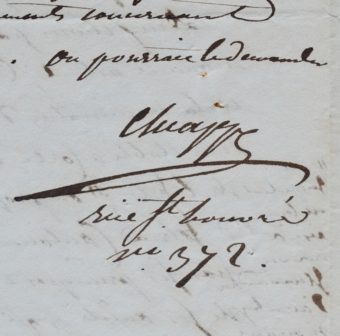 ments concernant
. on pourrai le demander
Chiappe
rue St honoré
no. 372.